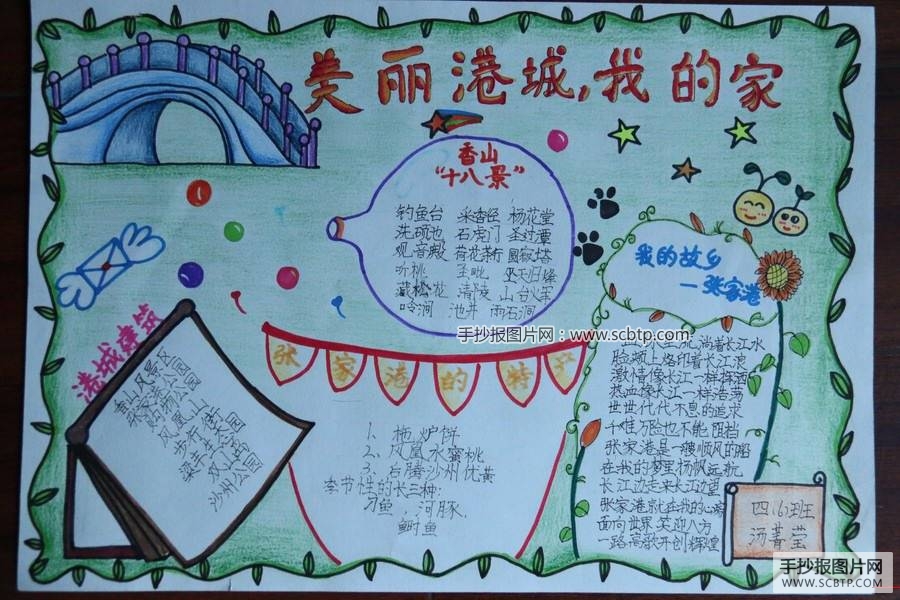 美丽港城,我的家
香山
“十八景”
钓鱼台 采香径 杨花堂
洗砚池 石虎门 圣过潭
观音殿 荷花茶行 圆寂塔
听桃
藏松花 清陵 山台火军
呤涧 池井 雨石涧
手抄报图片网：www.scbtp.com
我的故乡
—张家港
脸颊上烙印着长江浪
激情像长江一样挥洒
热血像长江一样浩荡
世世代代不息的追求
千难万险也不能阻挡
张家港是一艘顺风的船
在我的梦里扬帆远航
长江边走来长江边望
张家港就在我的心房
面向世界笑迎八方
一路高歌开创辉煌
港城建筑
香山风景区
张家港公园
凤凰山
步行街
沙州公园
张家港的特产
1、拖炉饼
2、凤凰水蜜桃
3、后塍沙州优黄
季节性的长三种:
刀鱼、河豚、
鲥鱼
四(6)班
汤菁莹
手抄报图片网
WWW.SCBTP.COM